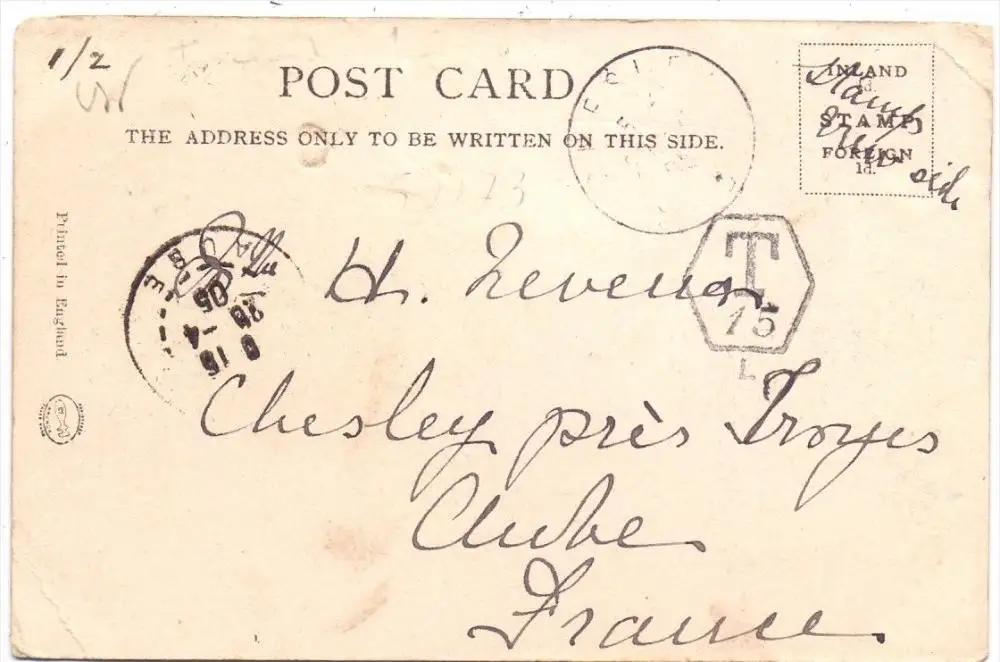 1/2
POST CARD
THE ADDRESS ONLY TO BE WRITTEN ON THIS SIDE.
INLAND
½d.
STAMP
FOREIGN
1d.
Stamp
other side
T
15
L
Printed in England
8 15
26 - 4
05
H.
Chesley près Troyes
Aube
France